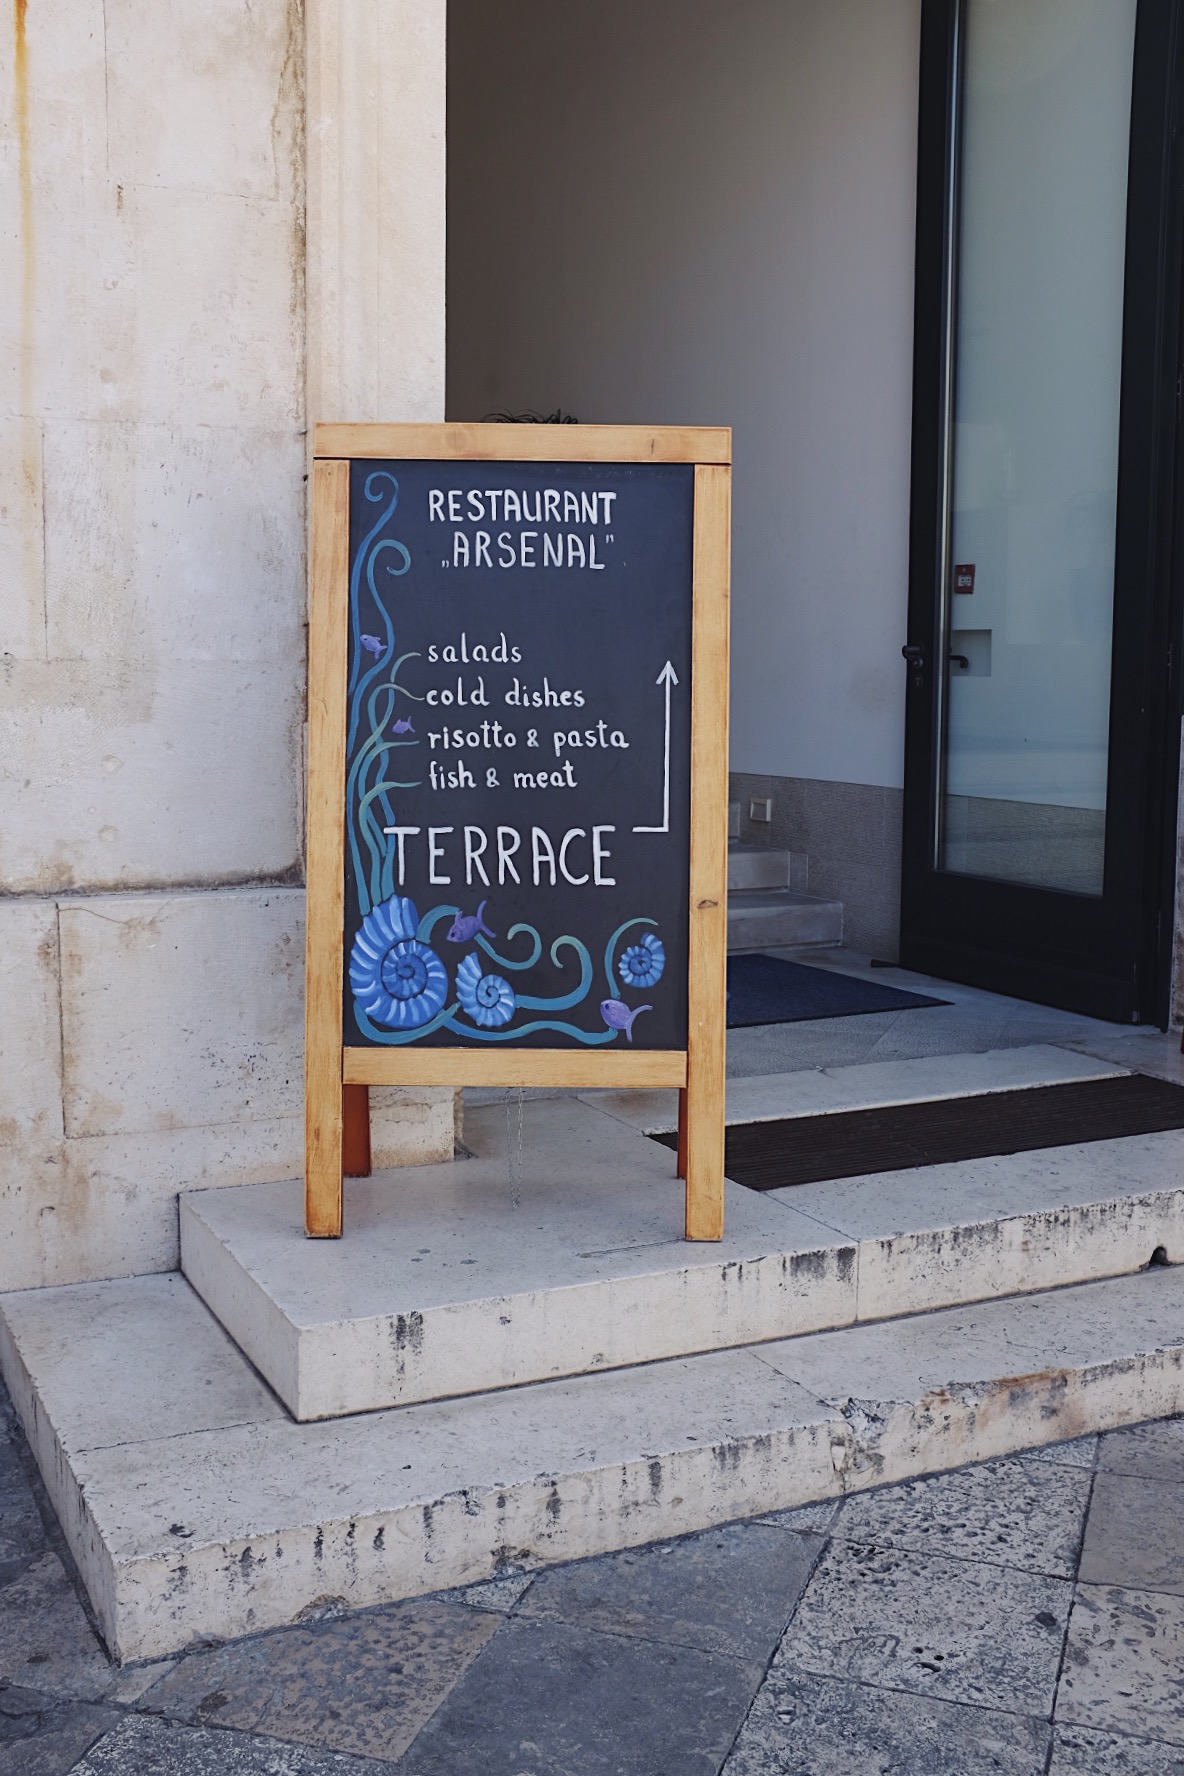 RESTAURANT
„ARSENAL"
salads
cold dishes
risotto & pasta
fish & meat
TERRACE